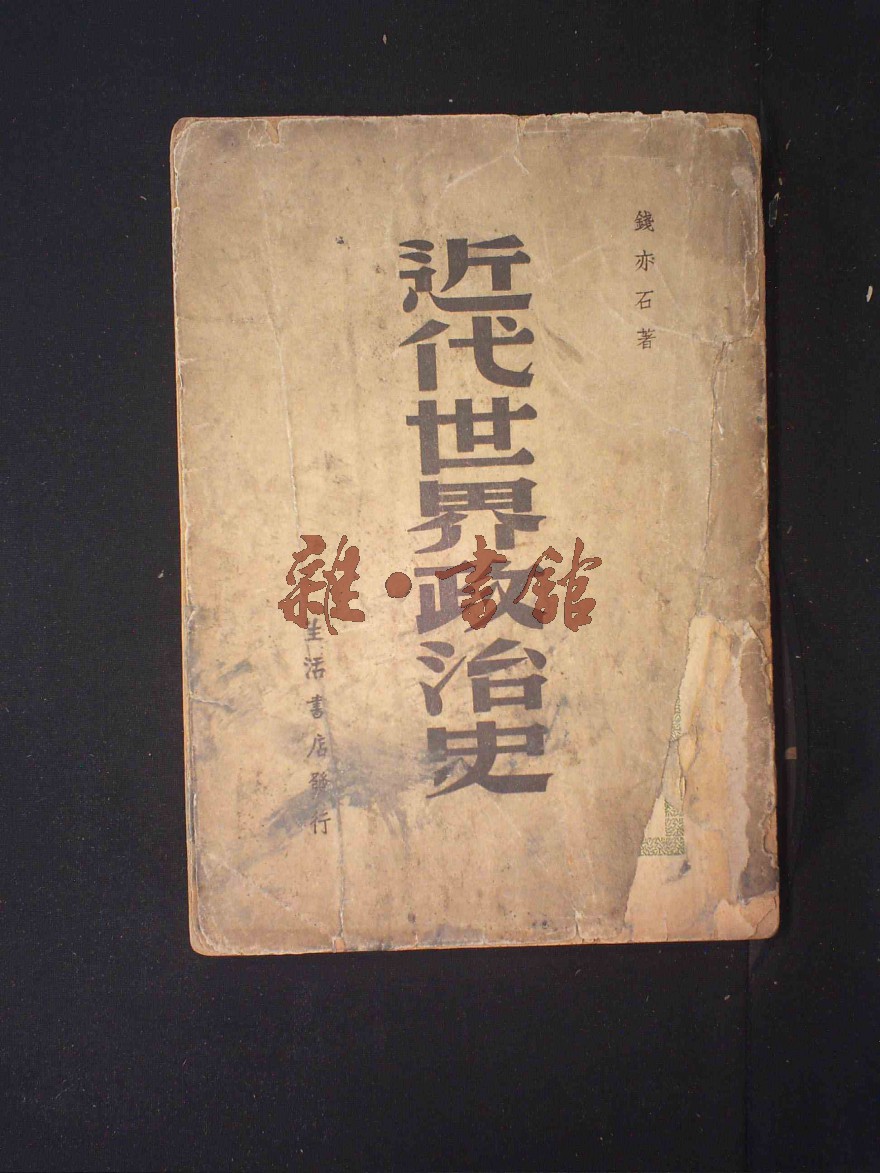 錢亦石著
近代世界政治史
生活書店發行
雜·書館